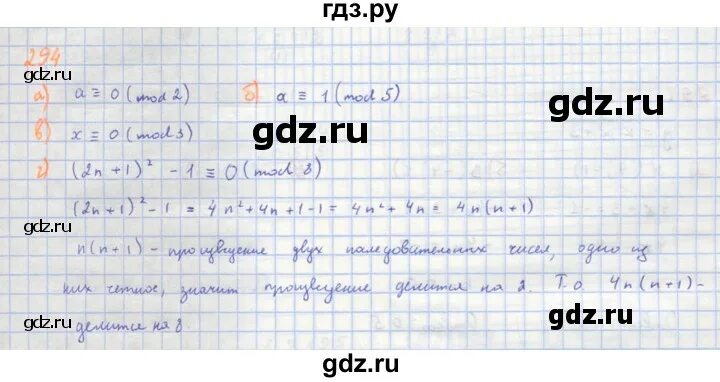 гдз.ру
294
gdz.ru
gdz.ru
а) a ≡ 0 (mod 2) б) a ≡ 1 (mod 5)
в) x ≡ 0 (mod 3)
gdz.ru
gdz.ru
г) (2n+1)² - 1 ≡ 0 (mod 8)
(2n+1)² - 1 = 4n² + 4n + 1 - 1 = 4n² + 4n = 4n(n+1)
gdz.ru
n(n+1) - произведение двух последовательных чисел, одно из
них четное, значит произведение делится на 2. Т.о. 4n(n+1) -
делится на 8.
gdz.ru
gdz.ru
gdz.ru
gdz.ru